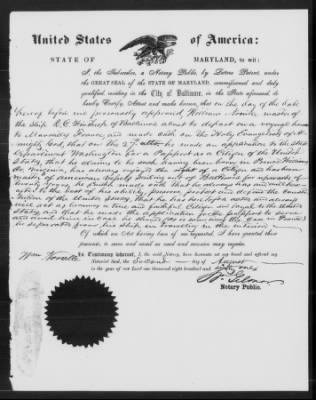 United States of America:
STATE OF MARYLAND, to wit:
I, the Subscriber, a Notary Public, by Letters Patent, under the
GREAT SEAL of the STATE OF MARYLAND, commissioned and duly
qualified, residing in the City of Baltimore, in the State aforesaid, do
hereby Certify, Attest and make known, that on the day of the date
hereof before me personally appeared William master of
the Ship R.C. Winthrop of Baltimore about to depart on a voyage hence
to France, and made oath on the Holy Evangels of Al-
mighty God, that on the 27 he made an application to the State
Department Washington for a Passport as a Citizen of the United
States, that he claims to be such having been born in
Virginia, has always enjoyed the right of a Citizen and has been
master of American Vessels out of Baltimore for upwards of
twenty years, he further made oath that he always has and will here-
after to the best of his ability, preserve, protect and defend the Consti-
tution of the United States, that he has been and always
will act as a true and faithful Citizen and loyal to the United
States, and that he made the application for the passport to save
he separates from his ship in traveling in the interior
Of which an Act being by me requested, I have granted these
presents, to serve and avail as need and occasion may require.
Wm
In Testimony whereof, I, the said Notary, have hereunto set my hand and affixed my
Notarial Seal, the Second day of August
in the year of our Lord one thousand eight hundred and sixty one
Notary Public.